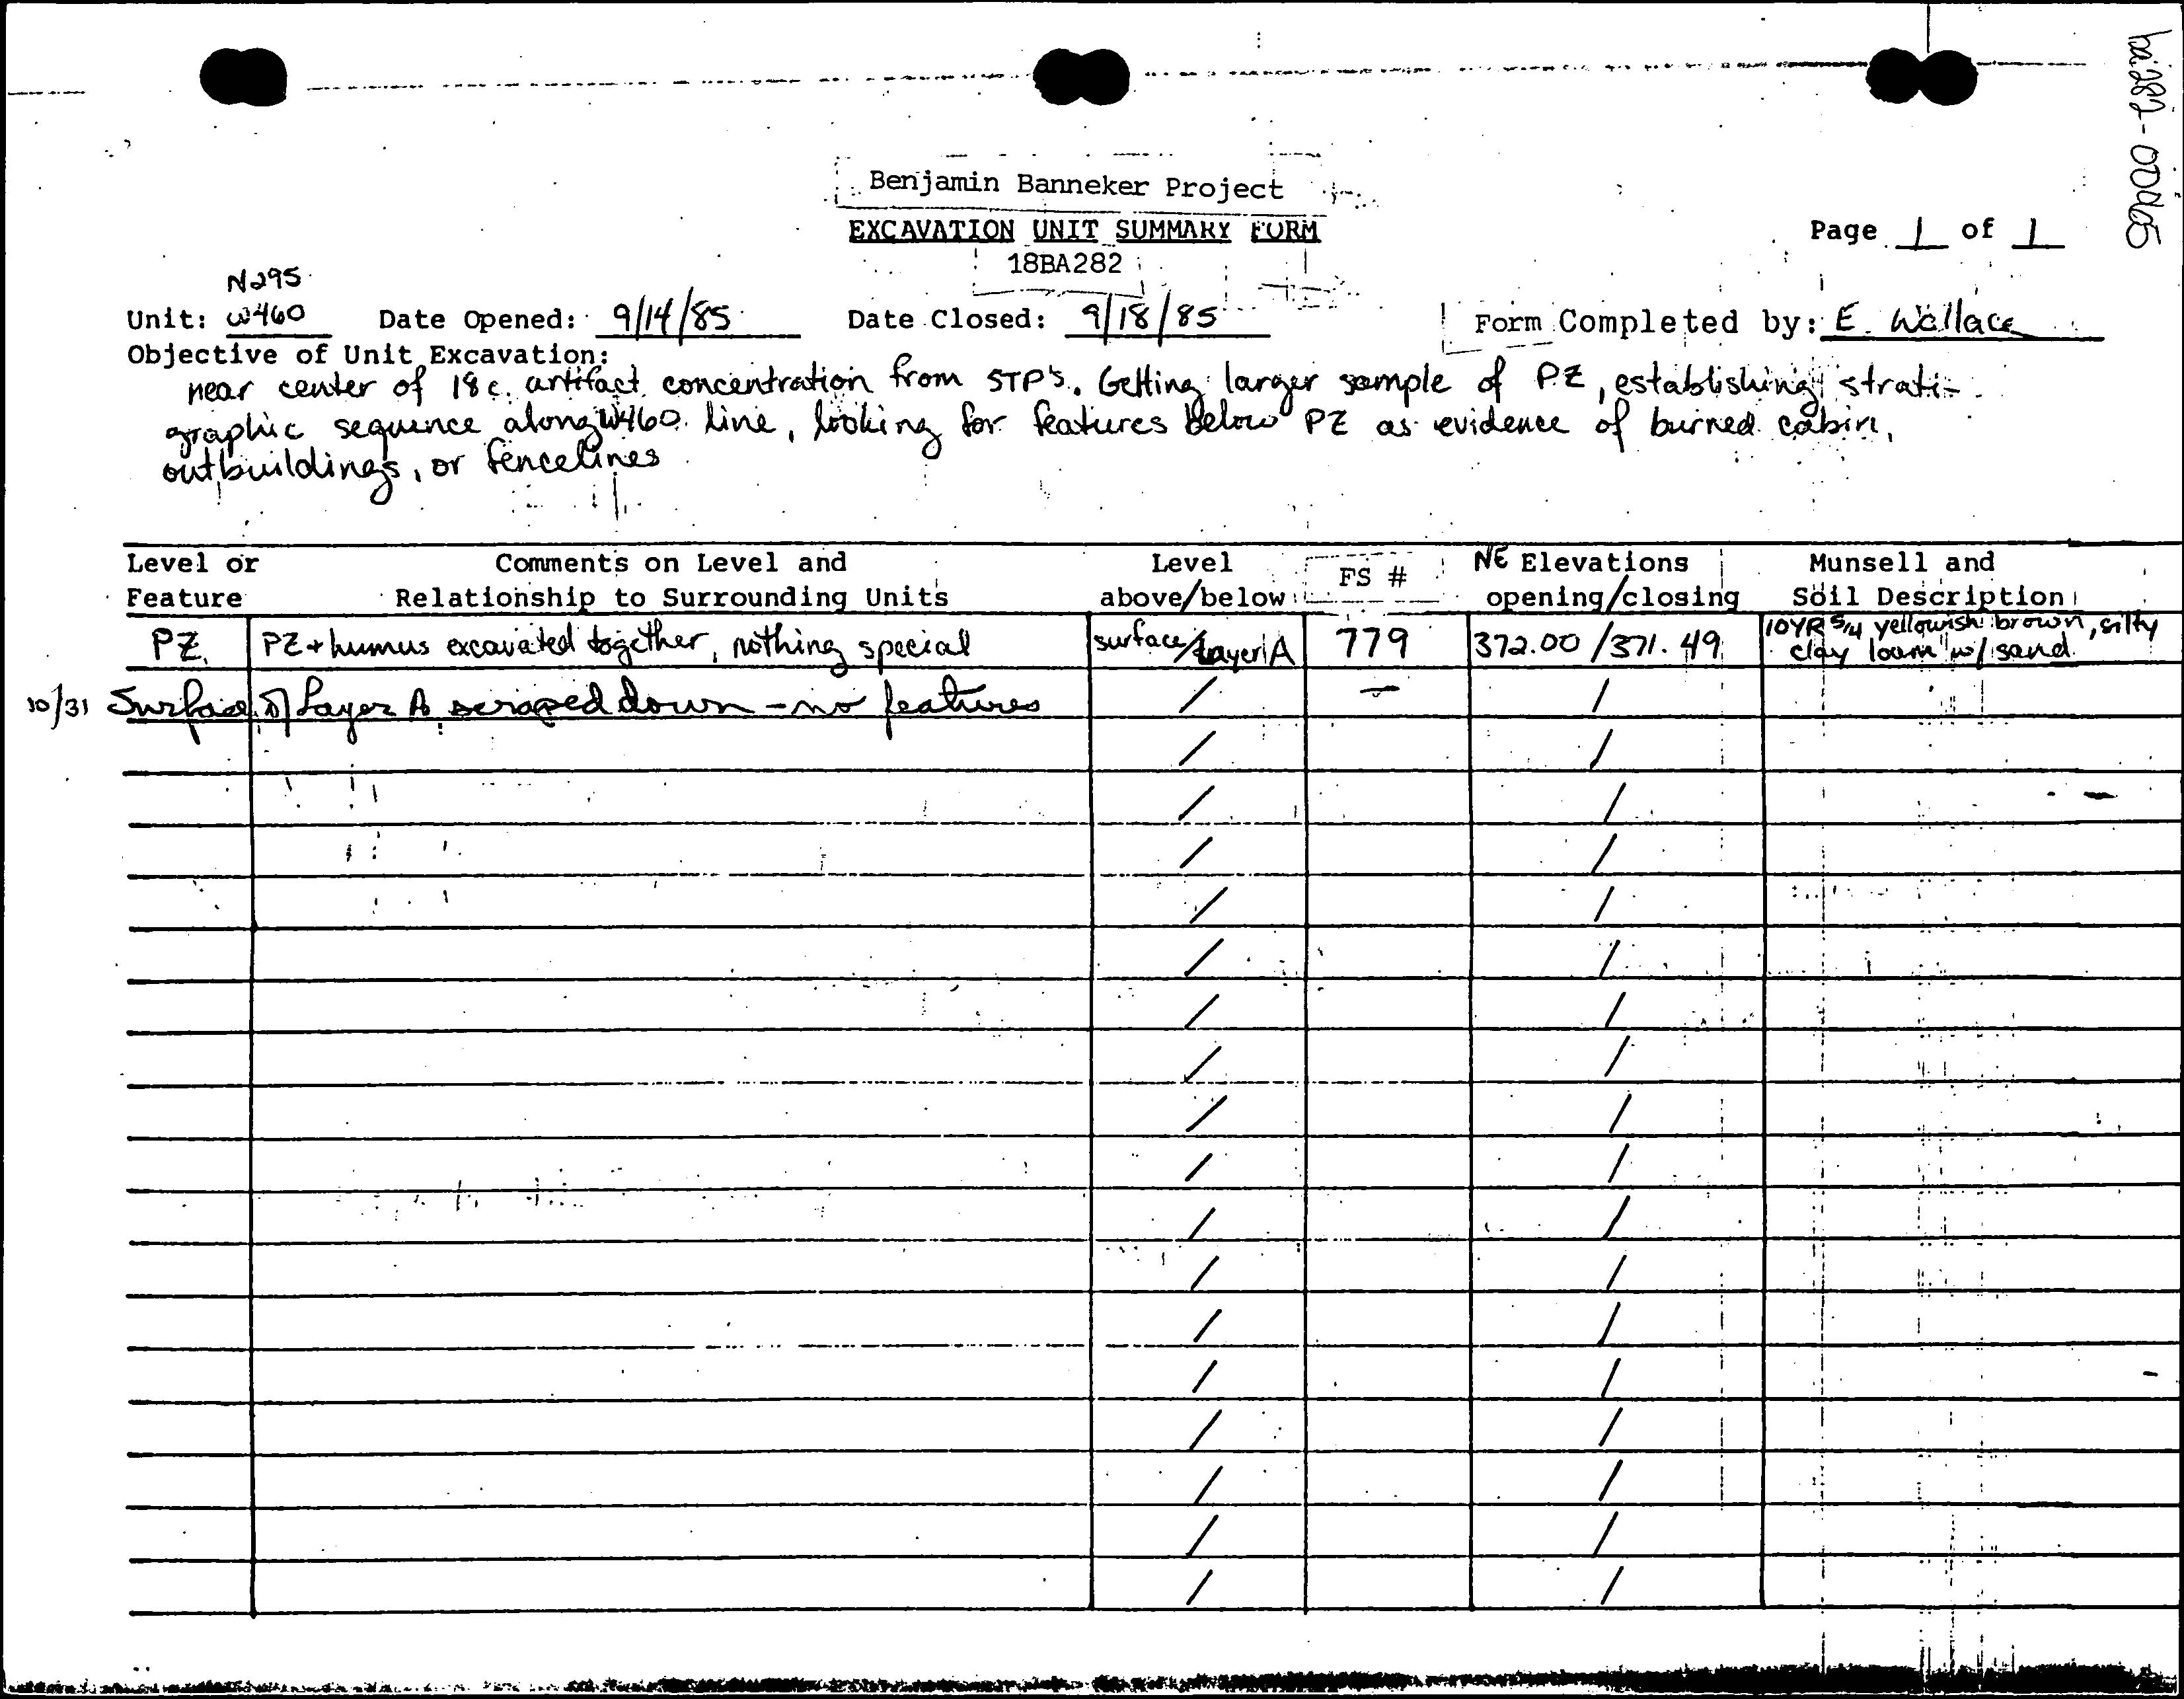 bai282-00465
Benjamin Banneker Project
EXCAVATION UNIT SUMMARY FORM
Page 1 of 1
18BA282
N295
Unit: W460 Date Opened: 9/14/85 Date Closed: 9/18/85 Form Completed by: E. Wallace
Objective of Unit Excavation:
near center of 18c. artifact concentration from STP's. Getting larger sample of PZ, establishing strati-
graphic sequence along W460 line, looking for features below PZ as evidence of burned cabin,
outbuildings, or fencelines
Level or Comments on Level and Level FS # NE Elevations Munsell and
Feature Relationship to Surrounding Units above/below opening/closing Soil Description
PZ. PZ + humus excavated together, nothing special surface/Layer A 779 372.00/371.49 10YR 5/4 yellowish brown, silty
clay loam w/ sand
10/31 Surface of Layer A scraped down - no features / - /